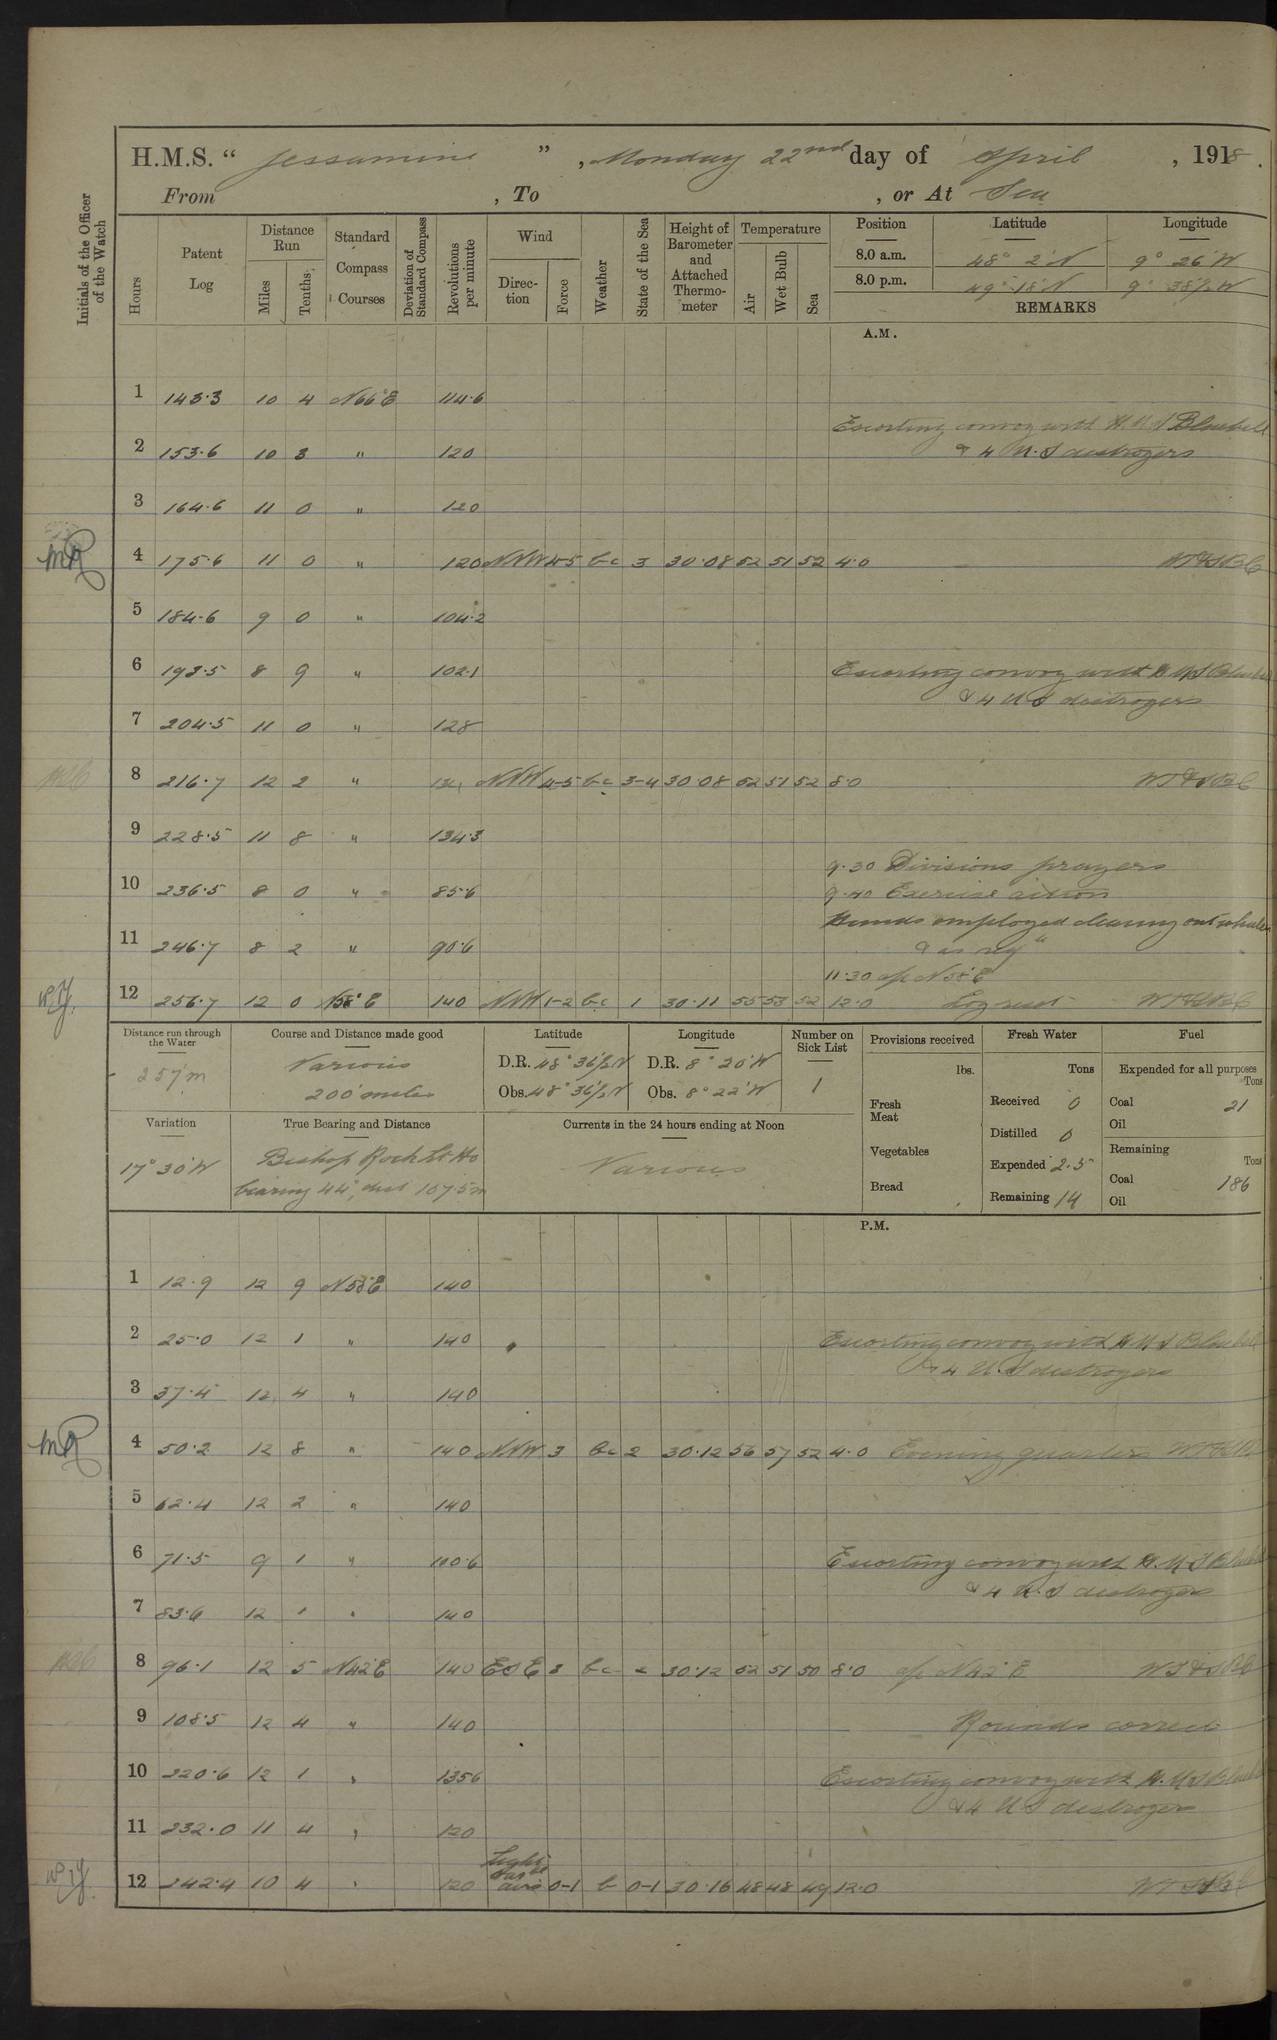 H.M.S. “ Jessamine ” , Monday 22nd day of April , 1918 .
From , To , or At Sea
Initials of the Officer of the Watch
Hours
Patent Log
Distance Run
Miles
Tenths
Standard Compass Courses
Deviation of Standard Compass
Revolutions per minute
Wind
Direction
Force
Weather
State of the Sea
Height of Barometer and Attached Thermometer
Temperature
Air
Wet Bulb
Sea
Position Latitude Longitude
8.0 a.m. 48° 2' N 9° 26' W
8.0 p.m. 49° 18' N 9° 38½ W
REMARKS
A.M.
1 143.3 10 4 N66°E 114.6
Escorting convoy with H.M.S Bluebell
2 153.6 10 3 " 120 & 4 U.S destroyers
3 164.6 11 0 " 120
MR 4 175.6 11 0 " 120 NNW 4-5 bc 3 30.08 52 51 52 4.0
5 184.6 9 0 " 104.2
6 193.5 8 9 " 102.1 Escorting convoy with H.M.S Bluebell
& 4 U.S destroyers
7 204.5 11 0 " 128
8 216.7 12 2 " NNW 4-5 bc 3-4 30.08 52 51 52 8.0
9 228.5 11 8 " 134.3
9.30 Divisions prayers
10 236.5 8 0 " 85.6 9.40 Exercise action
Hands employed cleaning out whaler
11 246.7 8 2 " 90.6 & as req"
11.30 a/c N58°E
12 256.7 12 0 N58°E 140 NNW 1-2 bc 1 30.11 55 53 52 12.0 Log reset
Distance run through the Water
257 m
Course and Distance made good
Various
200 miles
Latitude
D.R. 48° 36½ N
Obs. 48° 36½ N
Longitude
D.R. 8° 20' W
Obs. 8° 22' W
Number on Sick List
1
Provisions received
lbs.
Fresh Meat
Vegetables
Bread
Fresh Water
Tons
Received 0
Distilled 0
Expended 2.5
Remaining 14
Fuel
Expended for all purposes
Tons
Coal 21
Oil
Remaining
Tons
Coal 186
Oil
Variation
17° 30' W
True Bearing and Distance
Bishop Rock Lt. Ho
bearing 44°, dist 107.5 m
Currents in the 24 hours ending at Noon
Various
P.M.
1 12.9 12 9 N58°E 140
2 25.0 12 1 " 140 Escorting convoy with H.M.S Bluebell
& 4 U.S destroyers
3 37.4 12 4 " 140
MR 4 50.2 12 8 " 140 NNW 3 bc 2 30.12 56 57 52 4.0 Evening quarters
5 62.4 12 2 " 140
6 71.5 9 1 " 100.6 Escorting convoy with H.M.S Bluebell
& 4 U.S destroyers
7 83.6 12 1 " 140
8 96.1 12 5 N42°E 140 ESE 3 bc 2 30.12 52 51 50 8.0 a/c N42°E
9 108.5 12 4 " 140 Rounds correct
10 220.6 12 1 " 135.6 Escorting convoy with H.M.S Bluebell
& 4 U.S destroyers
11 232.0 11 4 " 120
12 242.4 10 4 " 120 Light airs 0-1 b 0-1 30.16 48 48 49 12.0